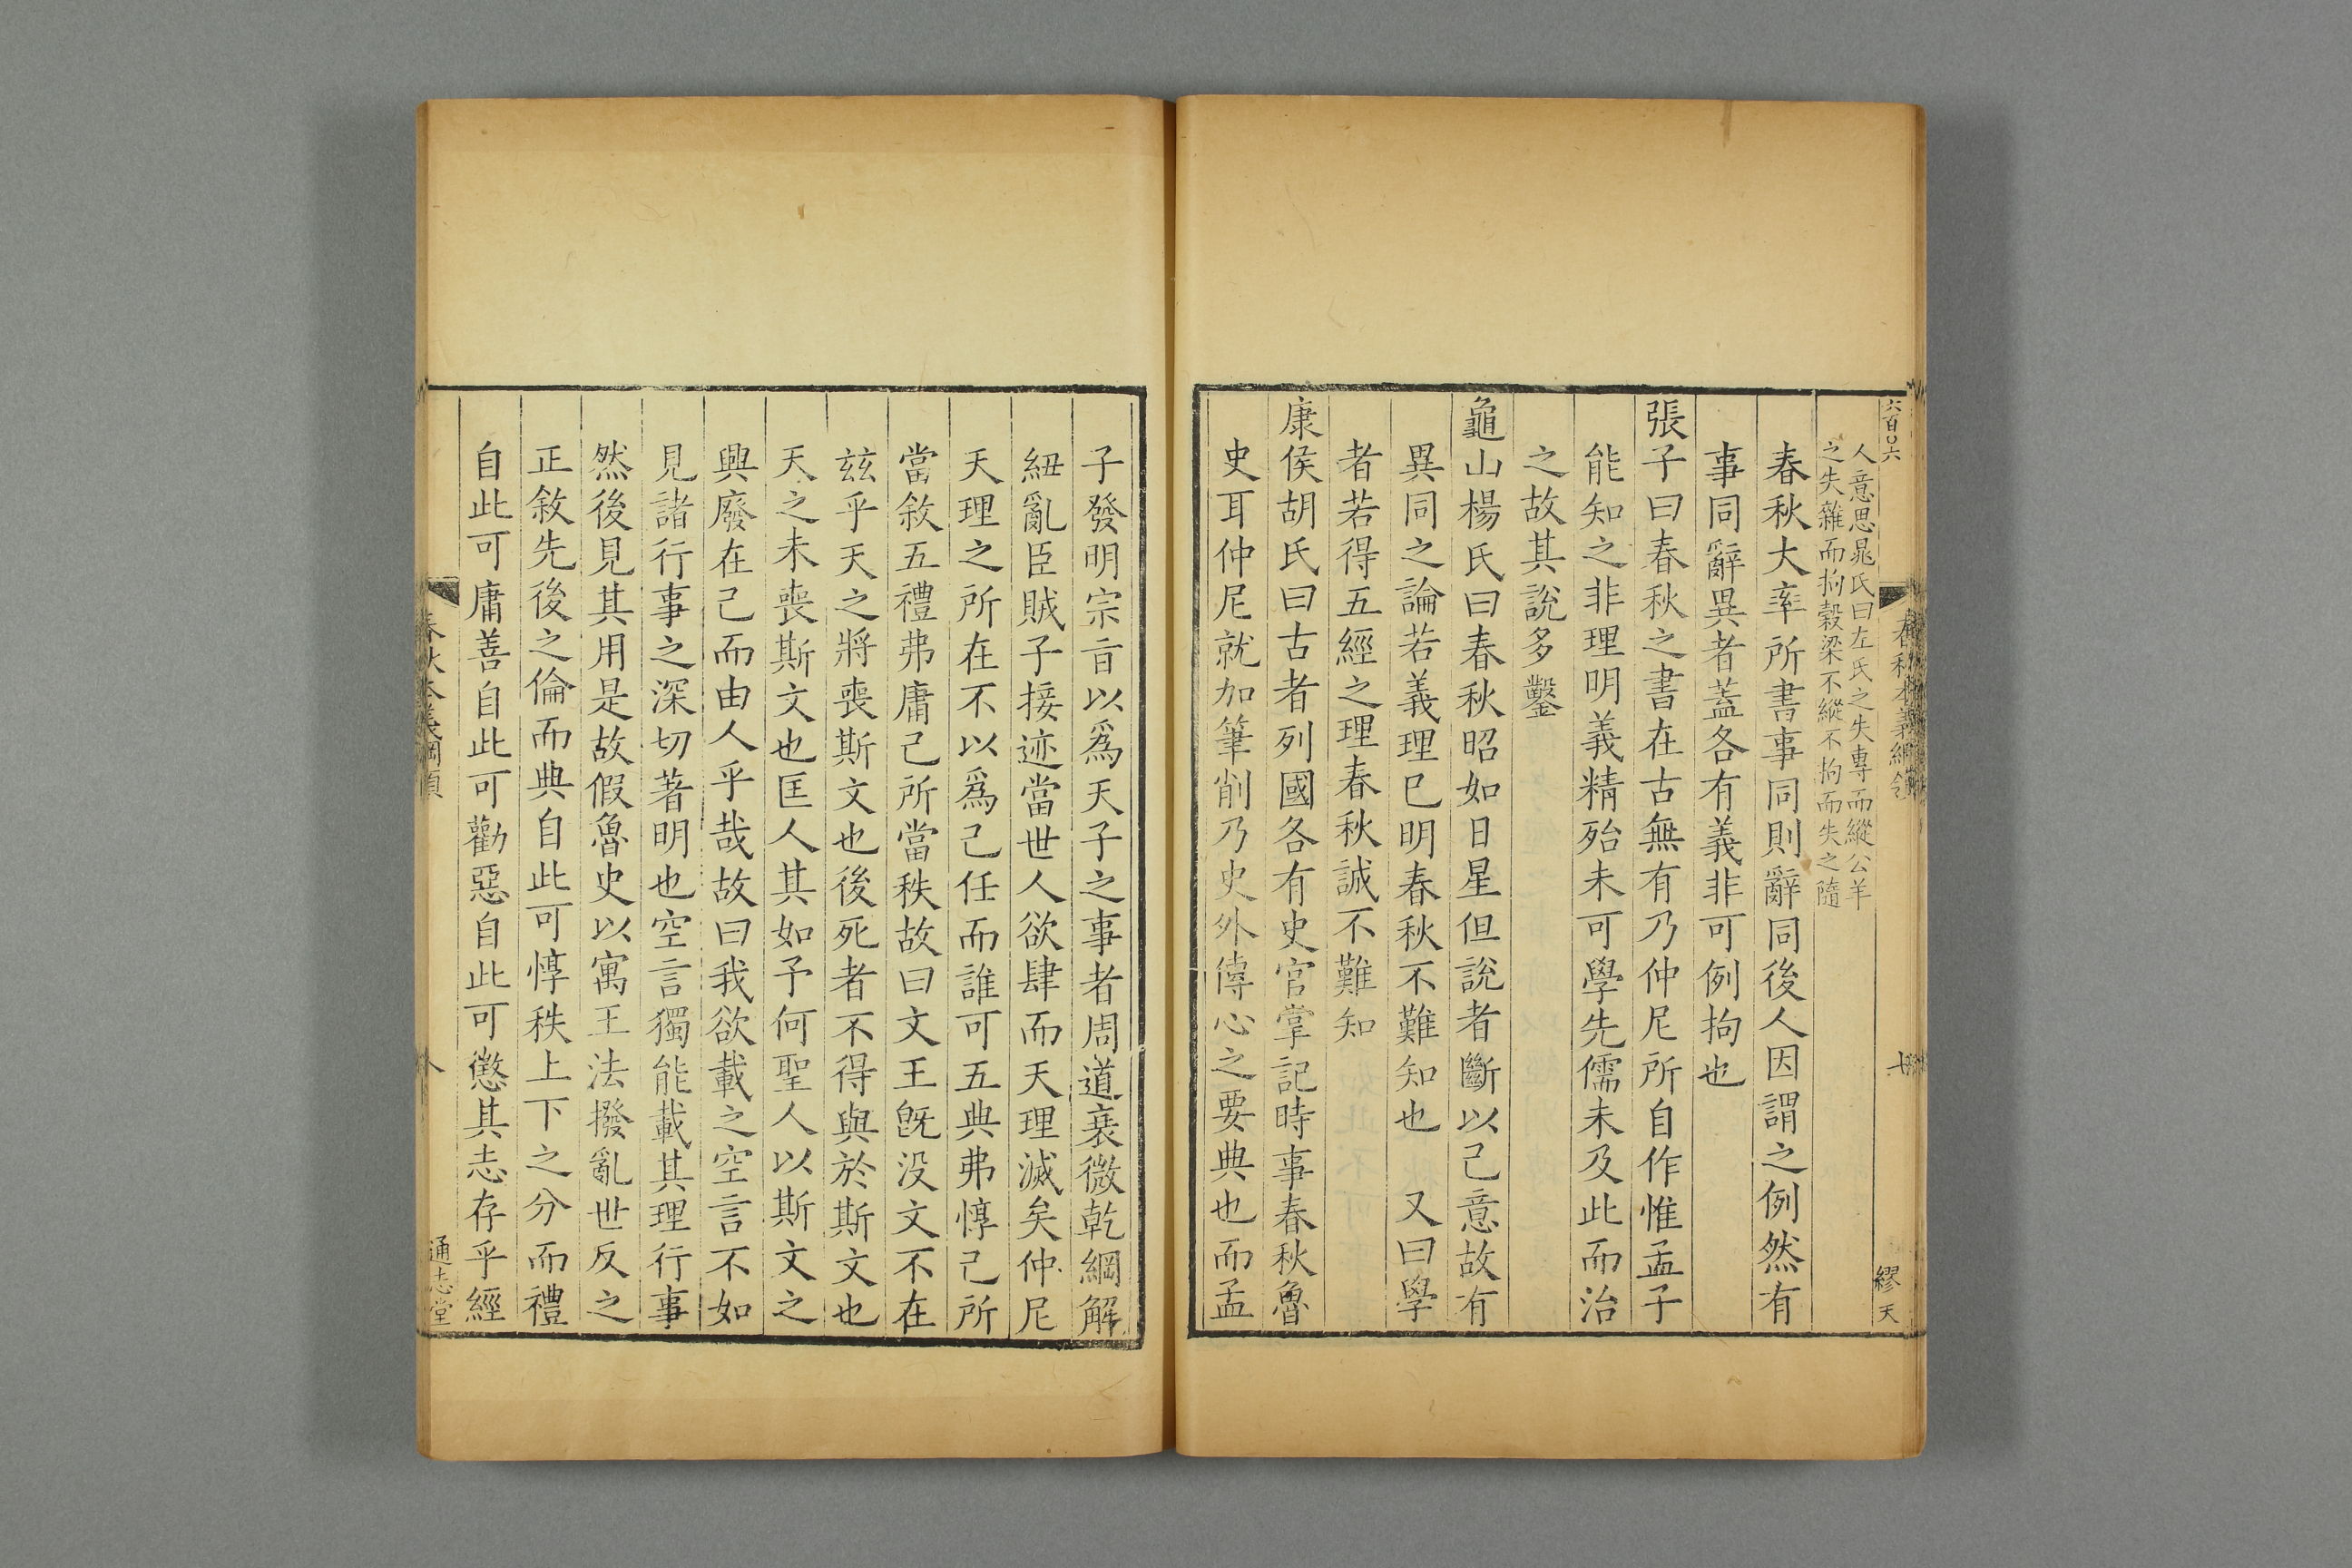 六百〇六
春秋本義綱領
七
繆天
人意思晁氏曰左氏之失專而縱公羊
之失雜而拘穀梁不縱不拘而失之隨
春秋大率所書事同則辭同後人因謂之例然有
事同辭異者蓋各有義非可例拘也
張子曰春秋之書在古無有乃仲尼所自作惟孟子
能知之非理明義精殆未可學先儒未及此而治
之故其說多鑿
龜山楊氏曰春秋昭如日星但說者斷以己意故有
異同之論若義理已明春秋不難知也 又曰學
者若得五經之理春秋誠不難知
康侯胡氏曰古者列國各有史官掌記時事春秋魯
史耳仲尼就加筆削乃史外傳心之要典也而孟
子發明宗旨以爲天子之事者周道衰微乾綱解
紐亂臣賊子接迹當世人欲肆而天理滅矣仲尼
天理之所在不以爲己任而誰可五典弗惇己所
當敘五禮弗庸己所當秩故曰文王旣没文不在
茲乎天之將喪斯文也後死者不得與於斯文也
天之未喪斯文也匡人其如予何聖人以斯文之
興廢在己而由人乎哉故曰我欲載之空言不如
見諸行事之深切著明也空言獨能載其理行事
然後見其用是故假魯史以寓王法撥亂世反之
正敘先後之倫而典自此可惇秩上下之分而禮
自此可庸善自此可勸惡自此可懲其志存乎經
春秋本義綱領
八
通志堂